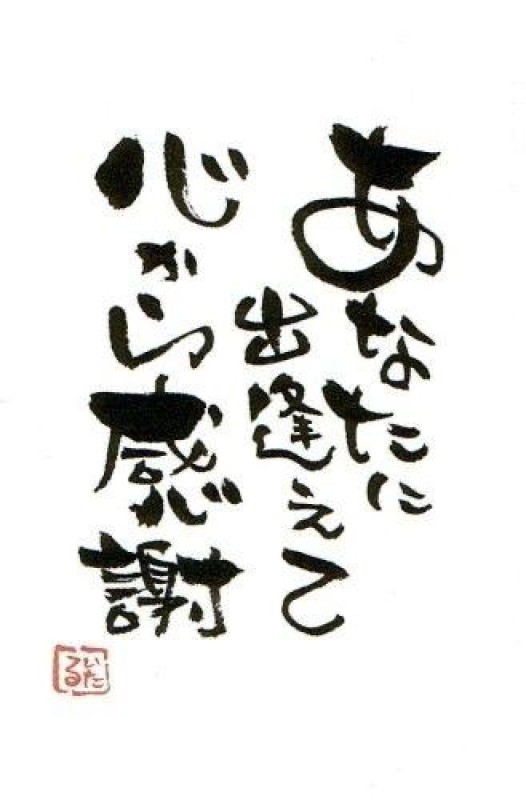 あなたに
出逢えて
心から感謝